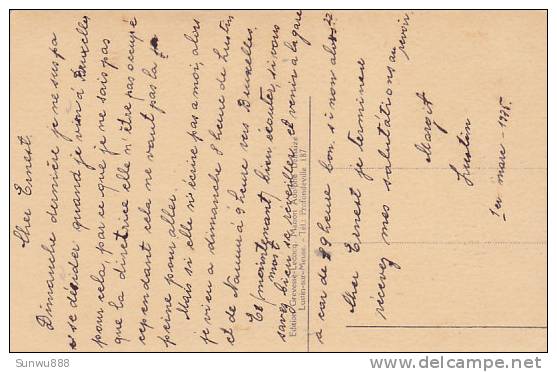 Cher Ernest.
Dimanche dernière je ne sus pa
se décider quand je vien à Bruxelles
pour cela, par ce que je ne sais pas
que la directrice elle n'être pas occupé
cependant cela ne vaut pas la
peine pour aller.
Mais si elle ni écrire pas a moi, alors
je vien a dimanche 8 heure de Lustin,
et de Namur à 9 heure vers Bruxelles.
Et maintenant, bien écouter, si vous
savez bien se reveiller, et venir à la gare
à car de 9 heure bon. si non alors
Cher Ernest je termine
récévez mes salutations au revoir.
Margot
Lustin
1er mars - 1935.
Edition Gevesse-Leclercq, Maison Adolphe
Lustin-sur-Meuse. - Tél.: Profondeville 187
Sunwu888
delcampe.net